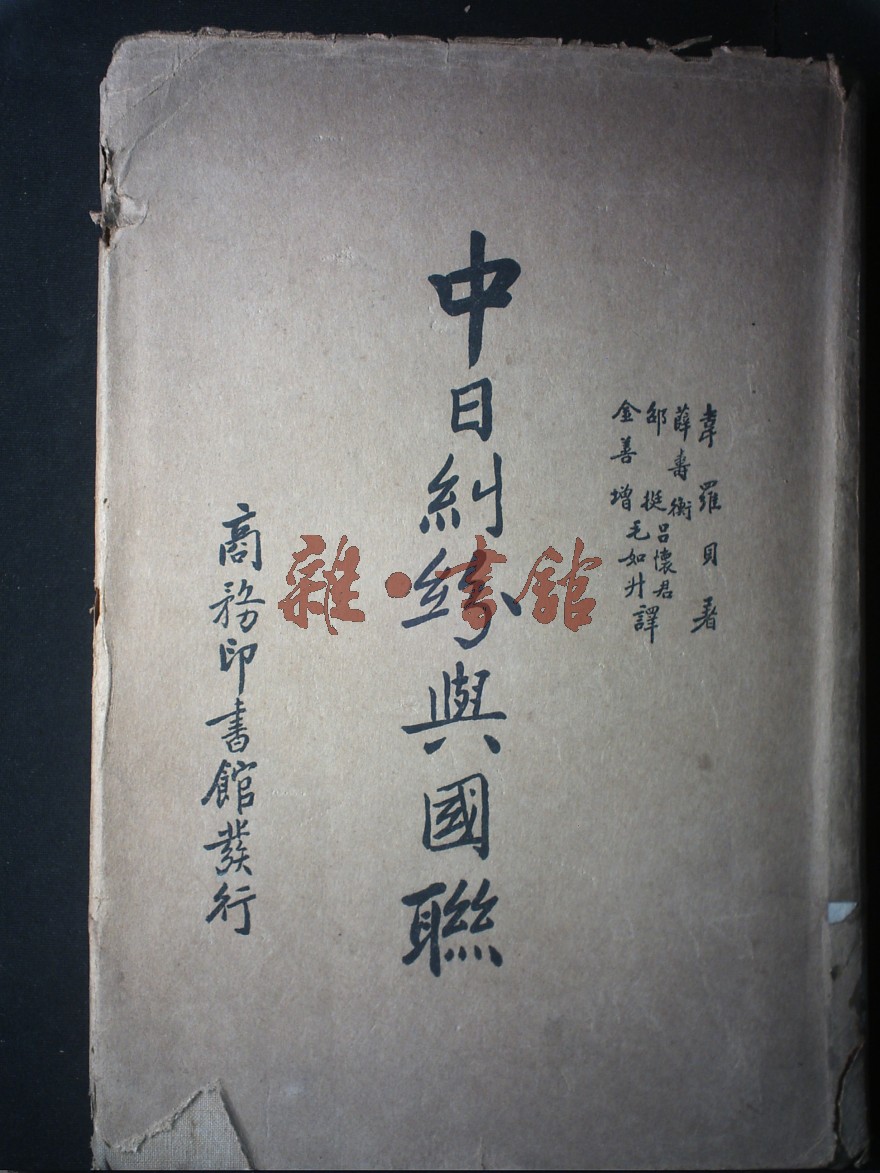 韋羅貝著
薛壽衡 呂懷君
邵挺 毛如升 譯
金善增
中日糾紛與國聯
商務印書館發行
雜·書館